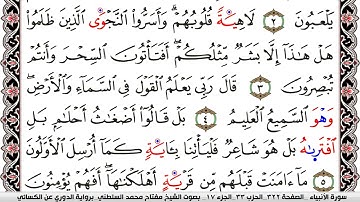 يَلْعَبُونَ ٢ لَاهِيَةً قُلُوبُهُمْ وَأَسَرُّوا النَّجْوَى الَّذِينَ ظَلَمُوا
هَلْ هَذَا إِلَّا بَشَرٌ مِّثْلُكُمْ أَفَتَأْتُونَ السِّحْرَ وَأَنتُمْ
تُبْصِرُونَ ٣ قَالَ رَبِّي يَعْلَمُ الْقَوْلَ فِي السَّمَاءِ وَالْأَرْضِ
وَهْوَ السَّمِيعُ الْعَلِيمُ ٤ بَلْ قَالُوا أَضْغَاثُ أَحْلَامٍ بَلِ
افْتَرَىٰهُ بَلْ هُوَ شَاعِرٌ فَلْيَأْتِنَا بِـَٔايَةٍ كَمَا أُرْسِلَ الْأَوَّلُونَ
٥ مَا ءَامَنَتْ قَبْلَهُم مِّن قَرْيَةٍ أَهْلَكْنَاهَا أَفَهُمْ يُؤْمِنُونَ
سورة الأنبياء . الصفحة ٣٢٢ . الحزب ٣٣ . الجزء ١٧ . بصوت الشيخ مفتاح محمد السلطني . برواية الدوري عن الكسائي